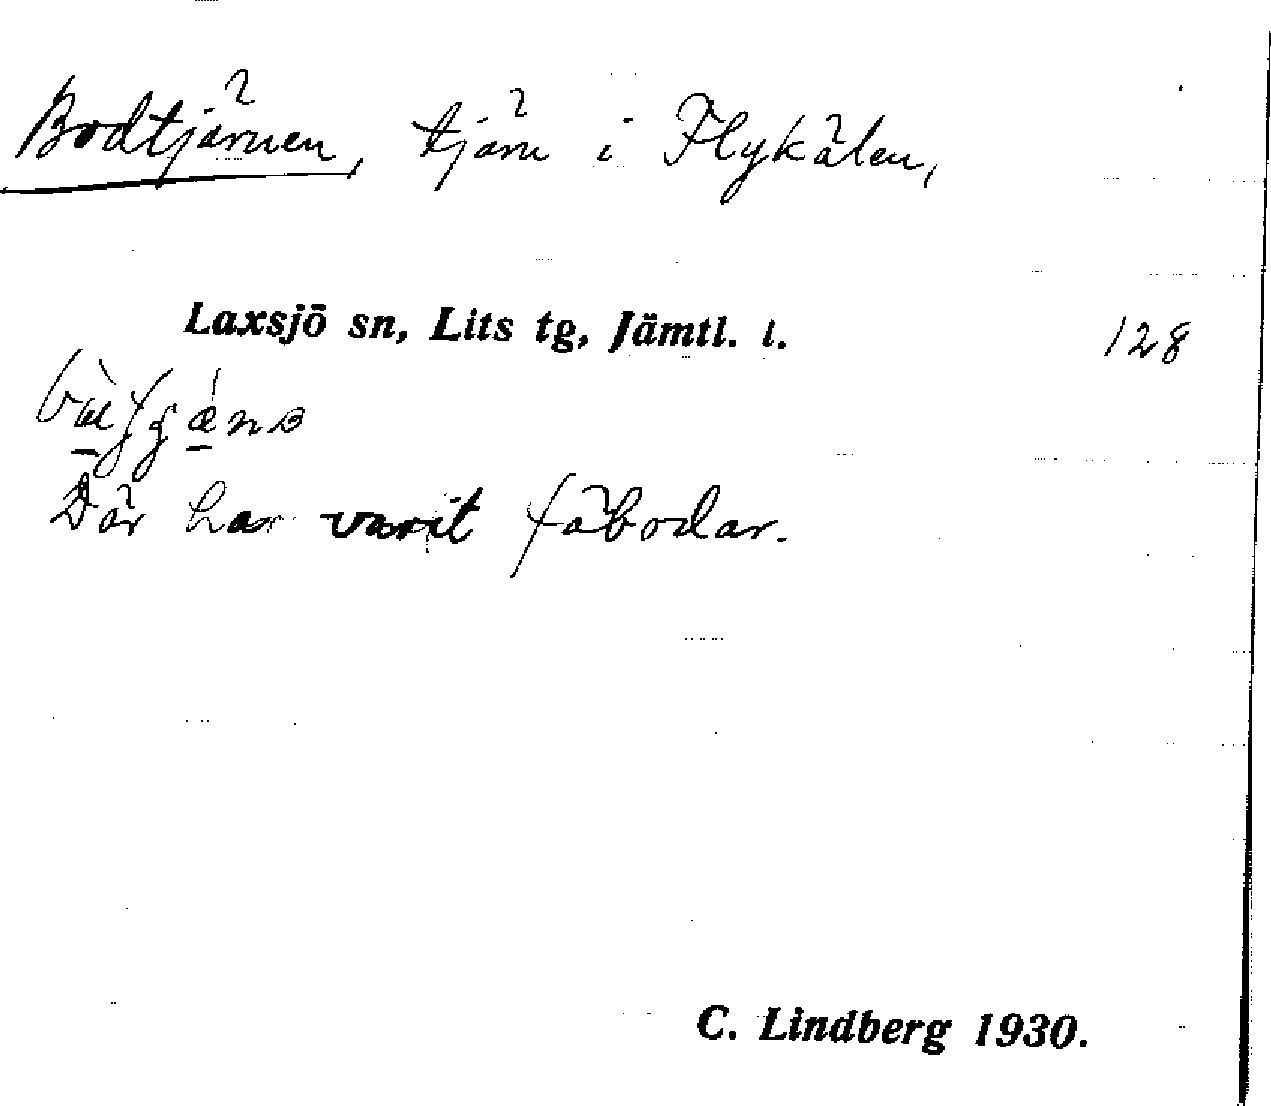 Bodtjärnen, tjärn i Flykälen,
Laxsjö sn, Lits tg, Jämtl. l.
128
Där har varit fäbodar.
C. Lindberg 1930.